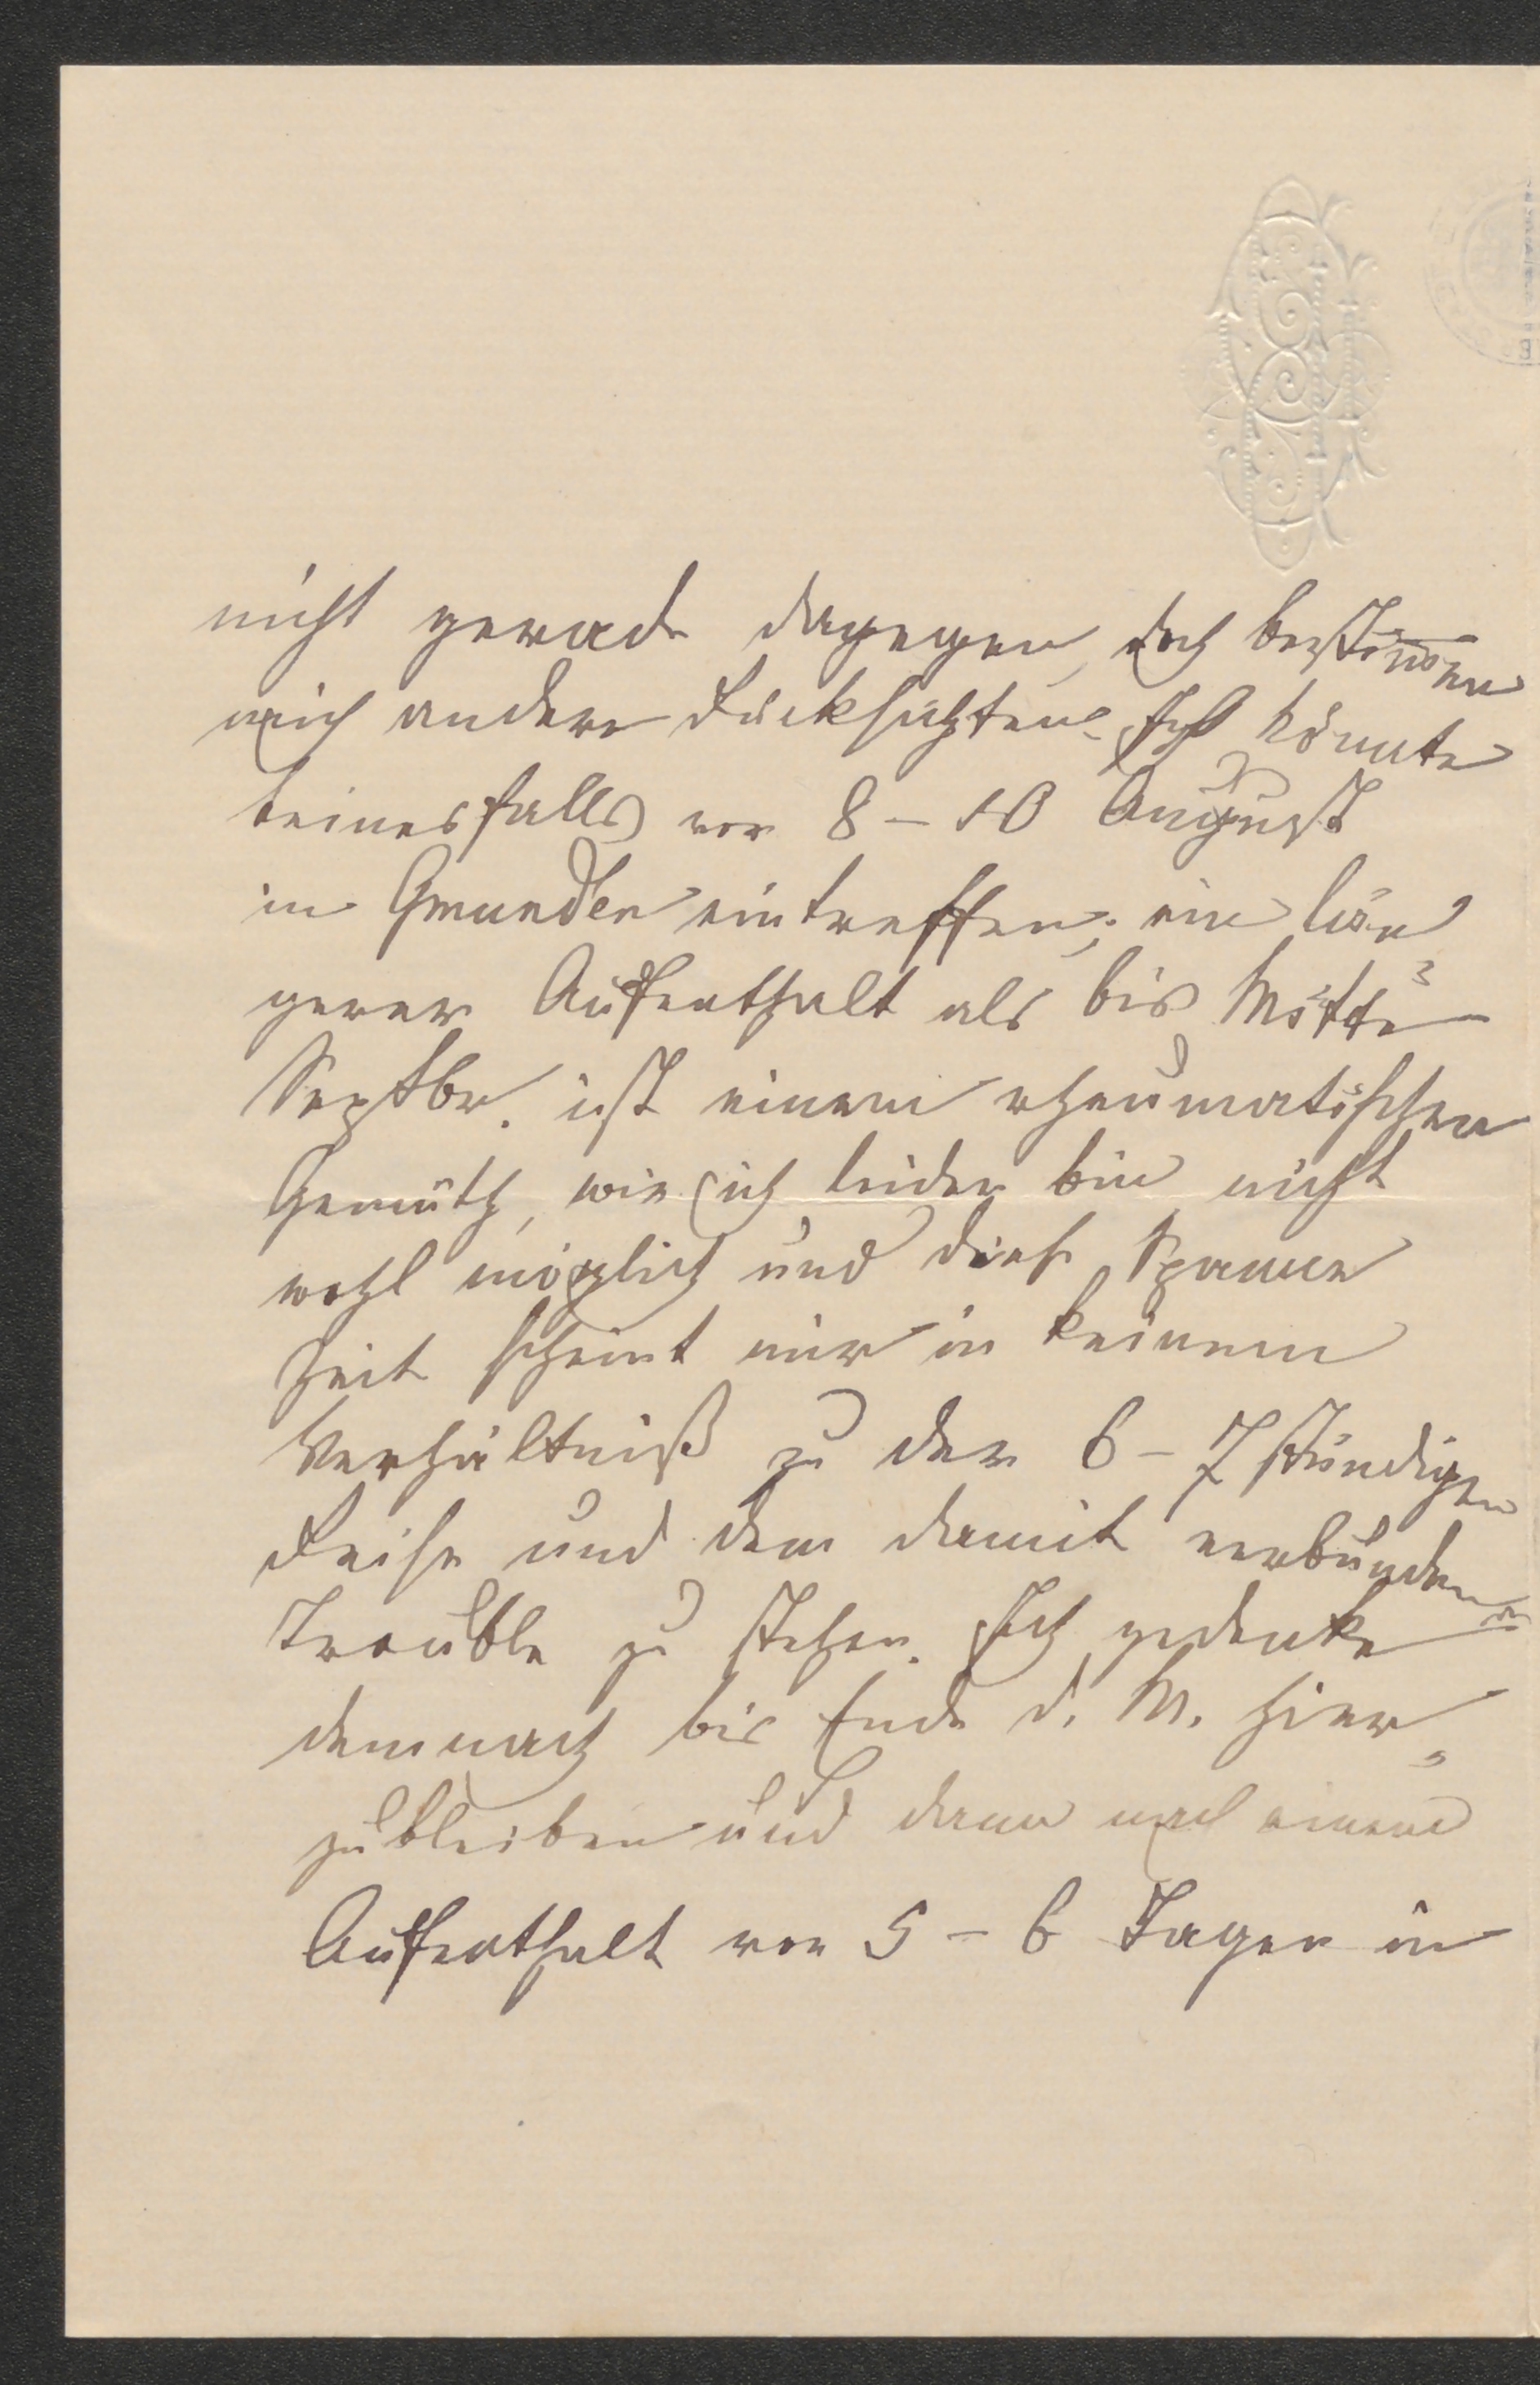 nicht gerade dagegen, doch bestim̅en
mich andere Rücksichten. Ich könnte
keinesfalls vor 8 – 10 August
in Gmunden eintreffen; ein län=
gerer Aufenthalt als bis Mitte
Septbr. ist einem rheumatischen
Gemüth, wie ich leider bin nicht
wohl möglich und diese Spanne
Zeit scheint mir in keinem
Verhältniß zu der 6 – 7 stündigen
Reise und dem damit verbundenen
Trouble zu stehen. Ich gedenke
demnach bis Ende d. M. hier=
zubleiben und dann nach einem
Aufenthalt von 5 – 6 Tagen in